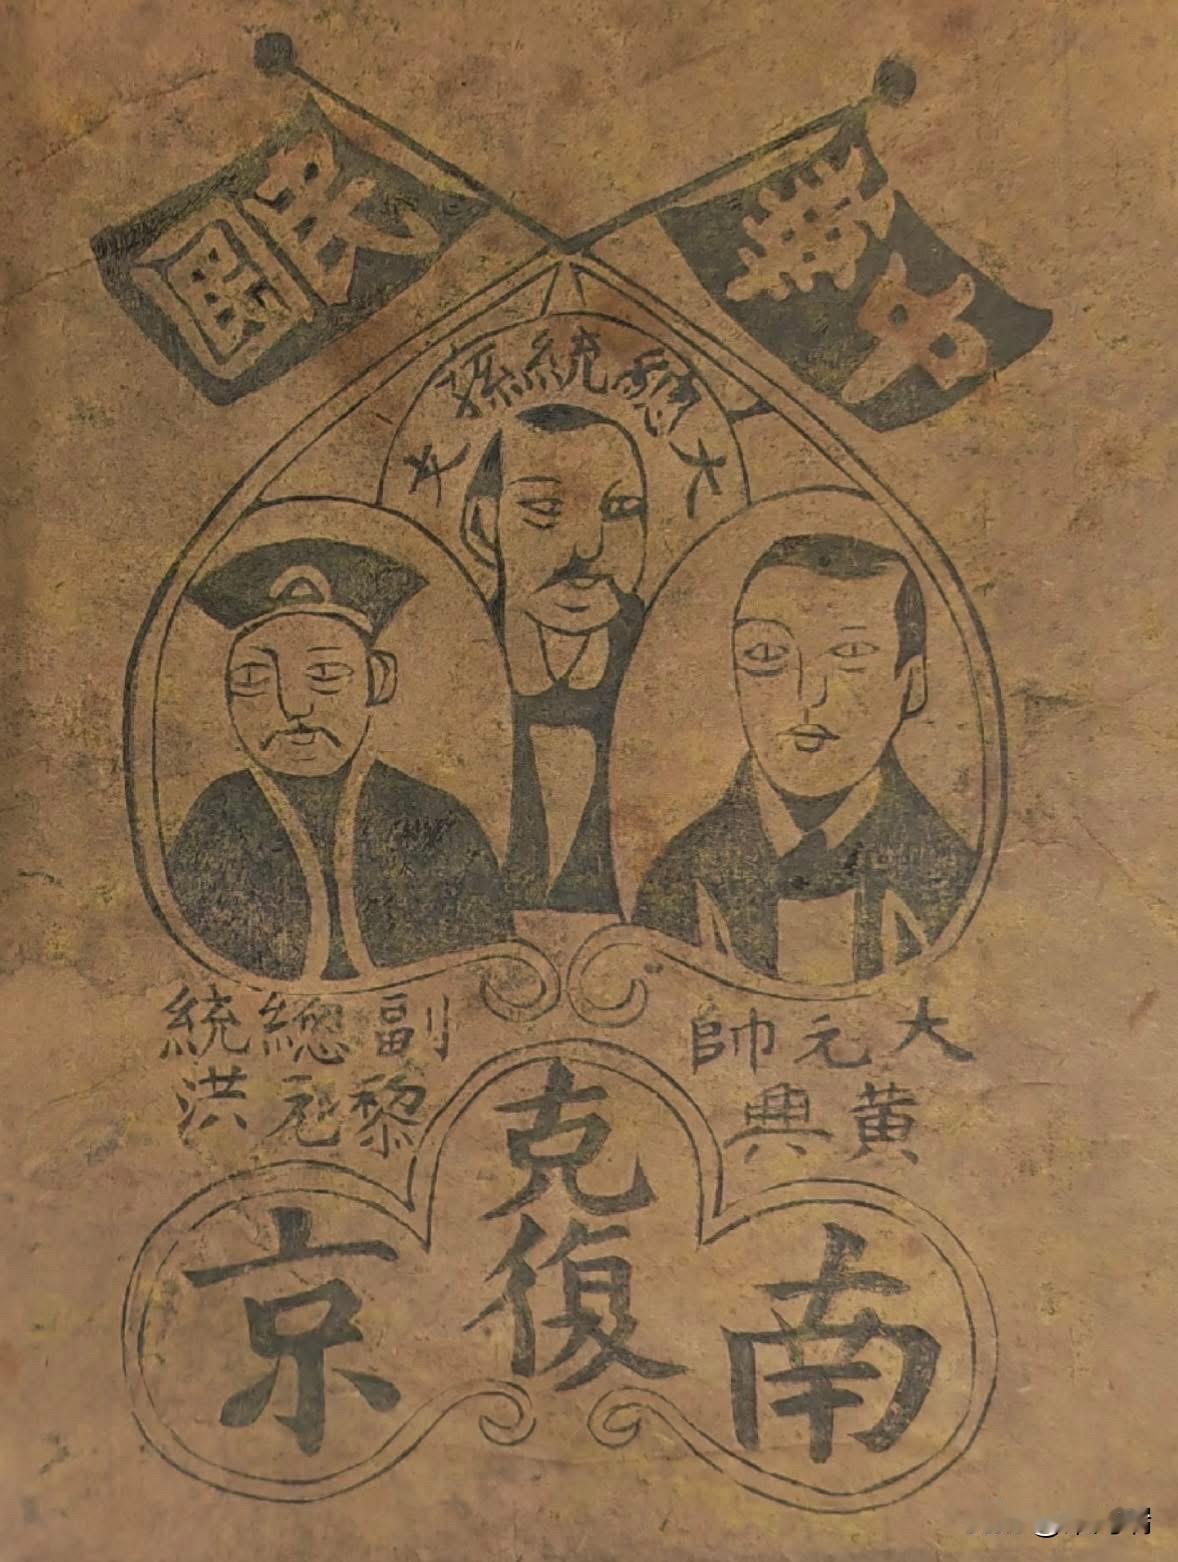 中華
民國
大總統孫文
大元帥
黄興
副總統
黎元洪
克復
南京